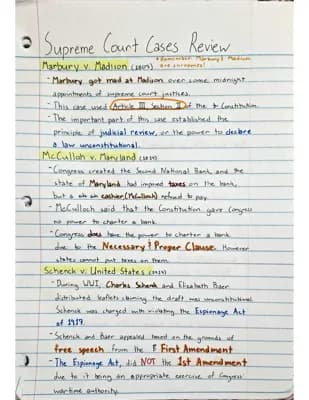 Supreme Court Cases Review
Marbury v. Madison (1803)
* Remember Marbury & Madison
are surnames!
- Marbury got mad at Madison over some midnight
appointments of supreme court justices.
- This case used Article III, Section II of the Constitution.
- The important part of this case established the
principle of judicial review, or the power to declare
a law unconstitutional.
McCulloh v. Maryland (1819)
- Congress created the Second National Bank, and the
state of Maryland had imposed taxes on the bank,
but a cashier (McCulloch) refused to pay.
- McCulloch said that the Constitution gave Congress
no power to charter a bank.
- Congress does have the power to charter a bank
due to the Necessary & Proper Clause. However
states cannot put taxes on them.
Schenck v. United States (1919)
- During WWI, Charles Schenk and Elizabeth Baer
distributed leaflets claiming the draft was unconstitutional.
Schenck was charged with violating the Espionage Act
of 1917.
- Schenck and Baer appealed based on the grounds of
free speech from the First Amendment
- The Espionage Act, did NOT the 1st Amendment
due to it being an appropriate exercise of Congress'
wartime authority.